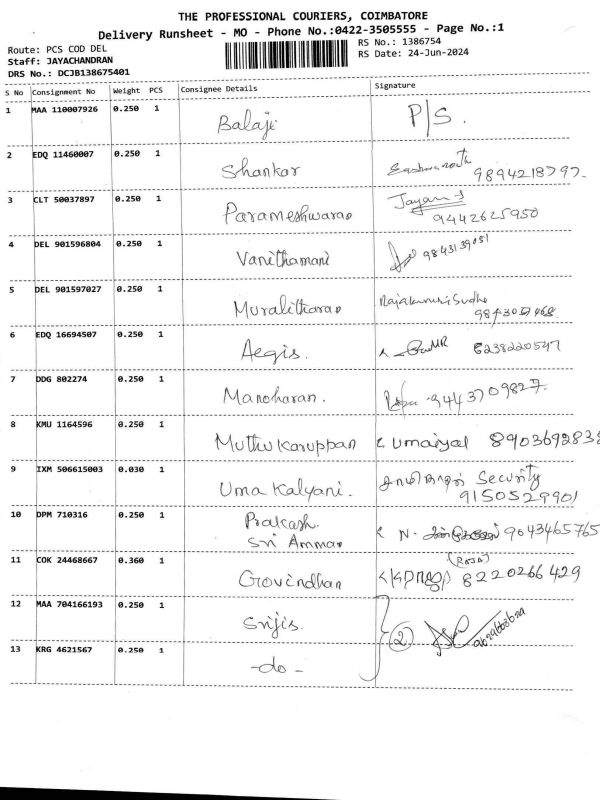 THE PROFESSIONAL COURIERS, COIMBATORE
Delivery Runsheet - MO - Phone No.:0422-3505555 - Page No.:1
Route: PCS COD DEL
Staff: JAYACHANDRAN
DRS No.: DCJB138675401
RS No.: 1386754
RS Date: 24-Jun-2024
S No Consignment No Weight PCS Consignee Details Signature
1 MAA 110007926 0.250 1 Balaji P/S.
2 EDQ 11460007 0.250 1 Shankar 9894218797.
3 CLT 50037897 0.250 1 Parameshwaran Jayam
9442625950
4 DEL 901596804 0.250 1 Vanithamani 9843139051
5 DEL 901597027 0.250 1 Muralitharan
6 EDQ 16694507 0.250 1 Aegis. 6238220547
7 DDG 802274 0.250 1 Manoharan. 9443709827.
8 KMU 1164596 0.250 1 Muthukaruppan Umaiyal 8903692838
9 IXM 506615003 0.030 1 Uma Kalyani. Security
9150529901
10 DPM 710316 0.250 1 Prakash
Sri Amman N. 9043465765
11 COK 24468667 0.360 1 Govindhan 8220266429
12 MAA 704166193 0.250 1 Srijis. 2
13 KRG 4621567 0.250 1 -do-